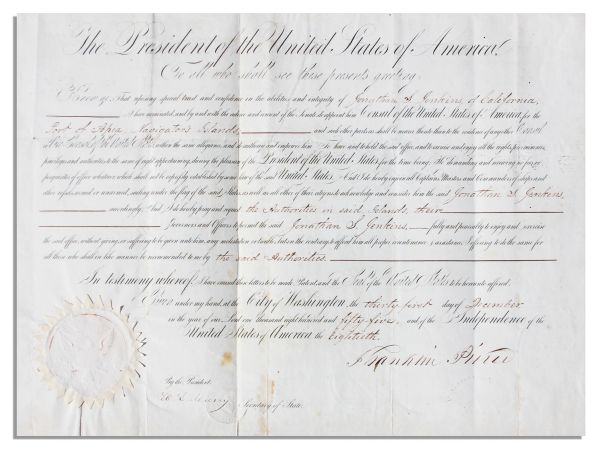 The President of the United States of America,
To all who shall see these presents greeting:
Know ye, That reposing special trust and confidence in the abilities and integrity of Jonathan S. Jenkins of California,
I have nominated, and by and with the advice and consent of the Senate do appoint him Consul of the United States of America for the
Port of Apia, Navigators Islands, and such other parts as shall be nearer thereto than to the residence of any other Consul
of the United States within the same allegiance, and do authorize and empower him To have and to hold the said office, and to exercise and enjoy all the rights, preeminences,
privileges and authorities to the same of right appertaining, during the pleasure of the President of the United States for the time being; He demanding and receiving no fees or
perquisites of office whatever, which shall not be expressly established by some law of the said United States. And I do hereby enjoin all Captains, Masters and Commanders of ships and
other vessels, armed or unarmed, sailing under the flag of the said States, as well as all other of their citizens, to acknowledge and consider him the said Jonathan S. Jenkins,
accordingly. And I do hereby pray and request the Authorities in said Islands, their
Governors and Officers to permit the said Jonathan S. Jenkins, fully and peaceably to enjoy and exercise
the said office, without giving, or suffering to be given unto him, any molestation or trouble, but on the contrary to afford him all proper countenance and assistance; I offering to do the same for
all those who shall in like manner be recommended to me by the said Authorities.
In testimony whereof, I have caused these letters to be made Patent, and the Seal of the United States to be hereunto affixed.
Given under my hand, at the City of Washington, the thirty first day of December
in the year of our Lord one thousand eight hundred and fifty five, and of the Independence of the
United States of America, the Eightieth.
Franklin Pierce
By the President:
W. L. Marcy Secretary of State.